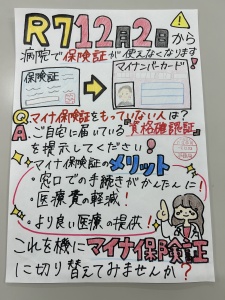 R7 12月2日から
病院で保険証が使えなくなります!
保険証
マイナンバーカード
Q マイナ保険証をもっていない人は?
A ご自宅に届いている『資格確認証』
を提示してください!
マイナ保険証のメリット
・窓口での手続きがかんたんに!
・医療費の軽減!
・より良い医療の提供!
これを機にマイナ保険証
に切り替えてみませんか?